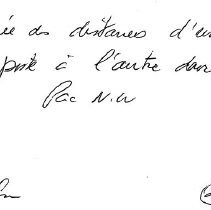 ée ds distances d'un
poste à l'autre dans
Pac N.W